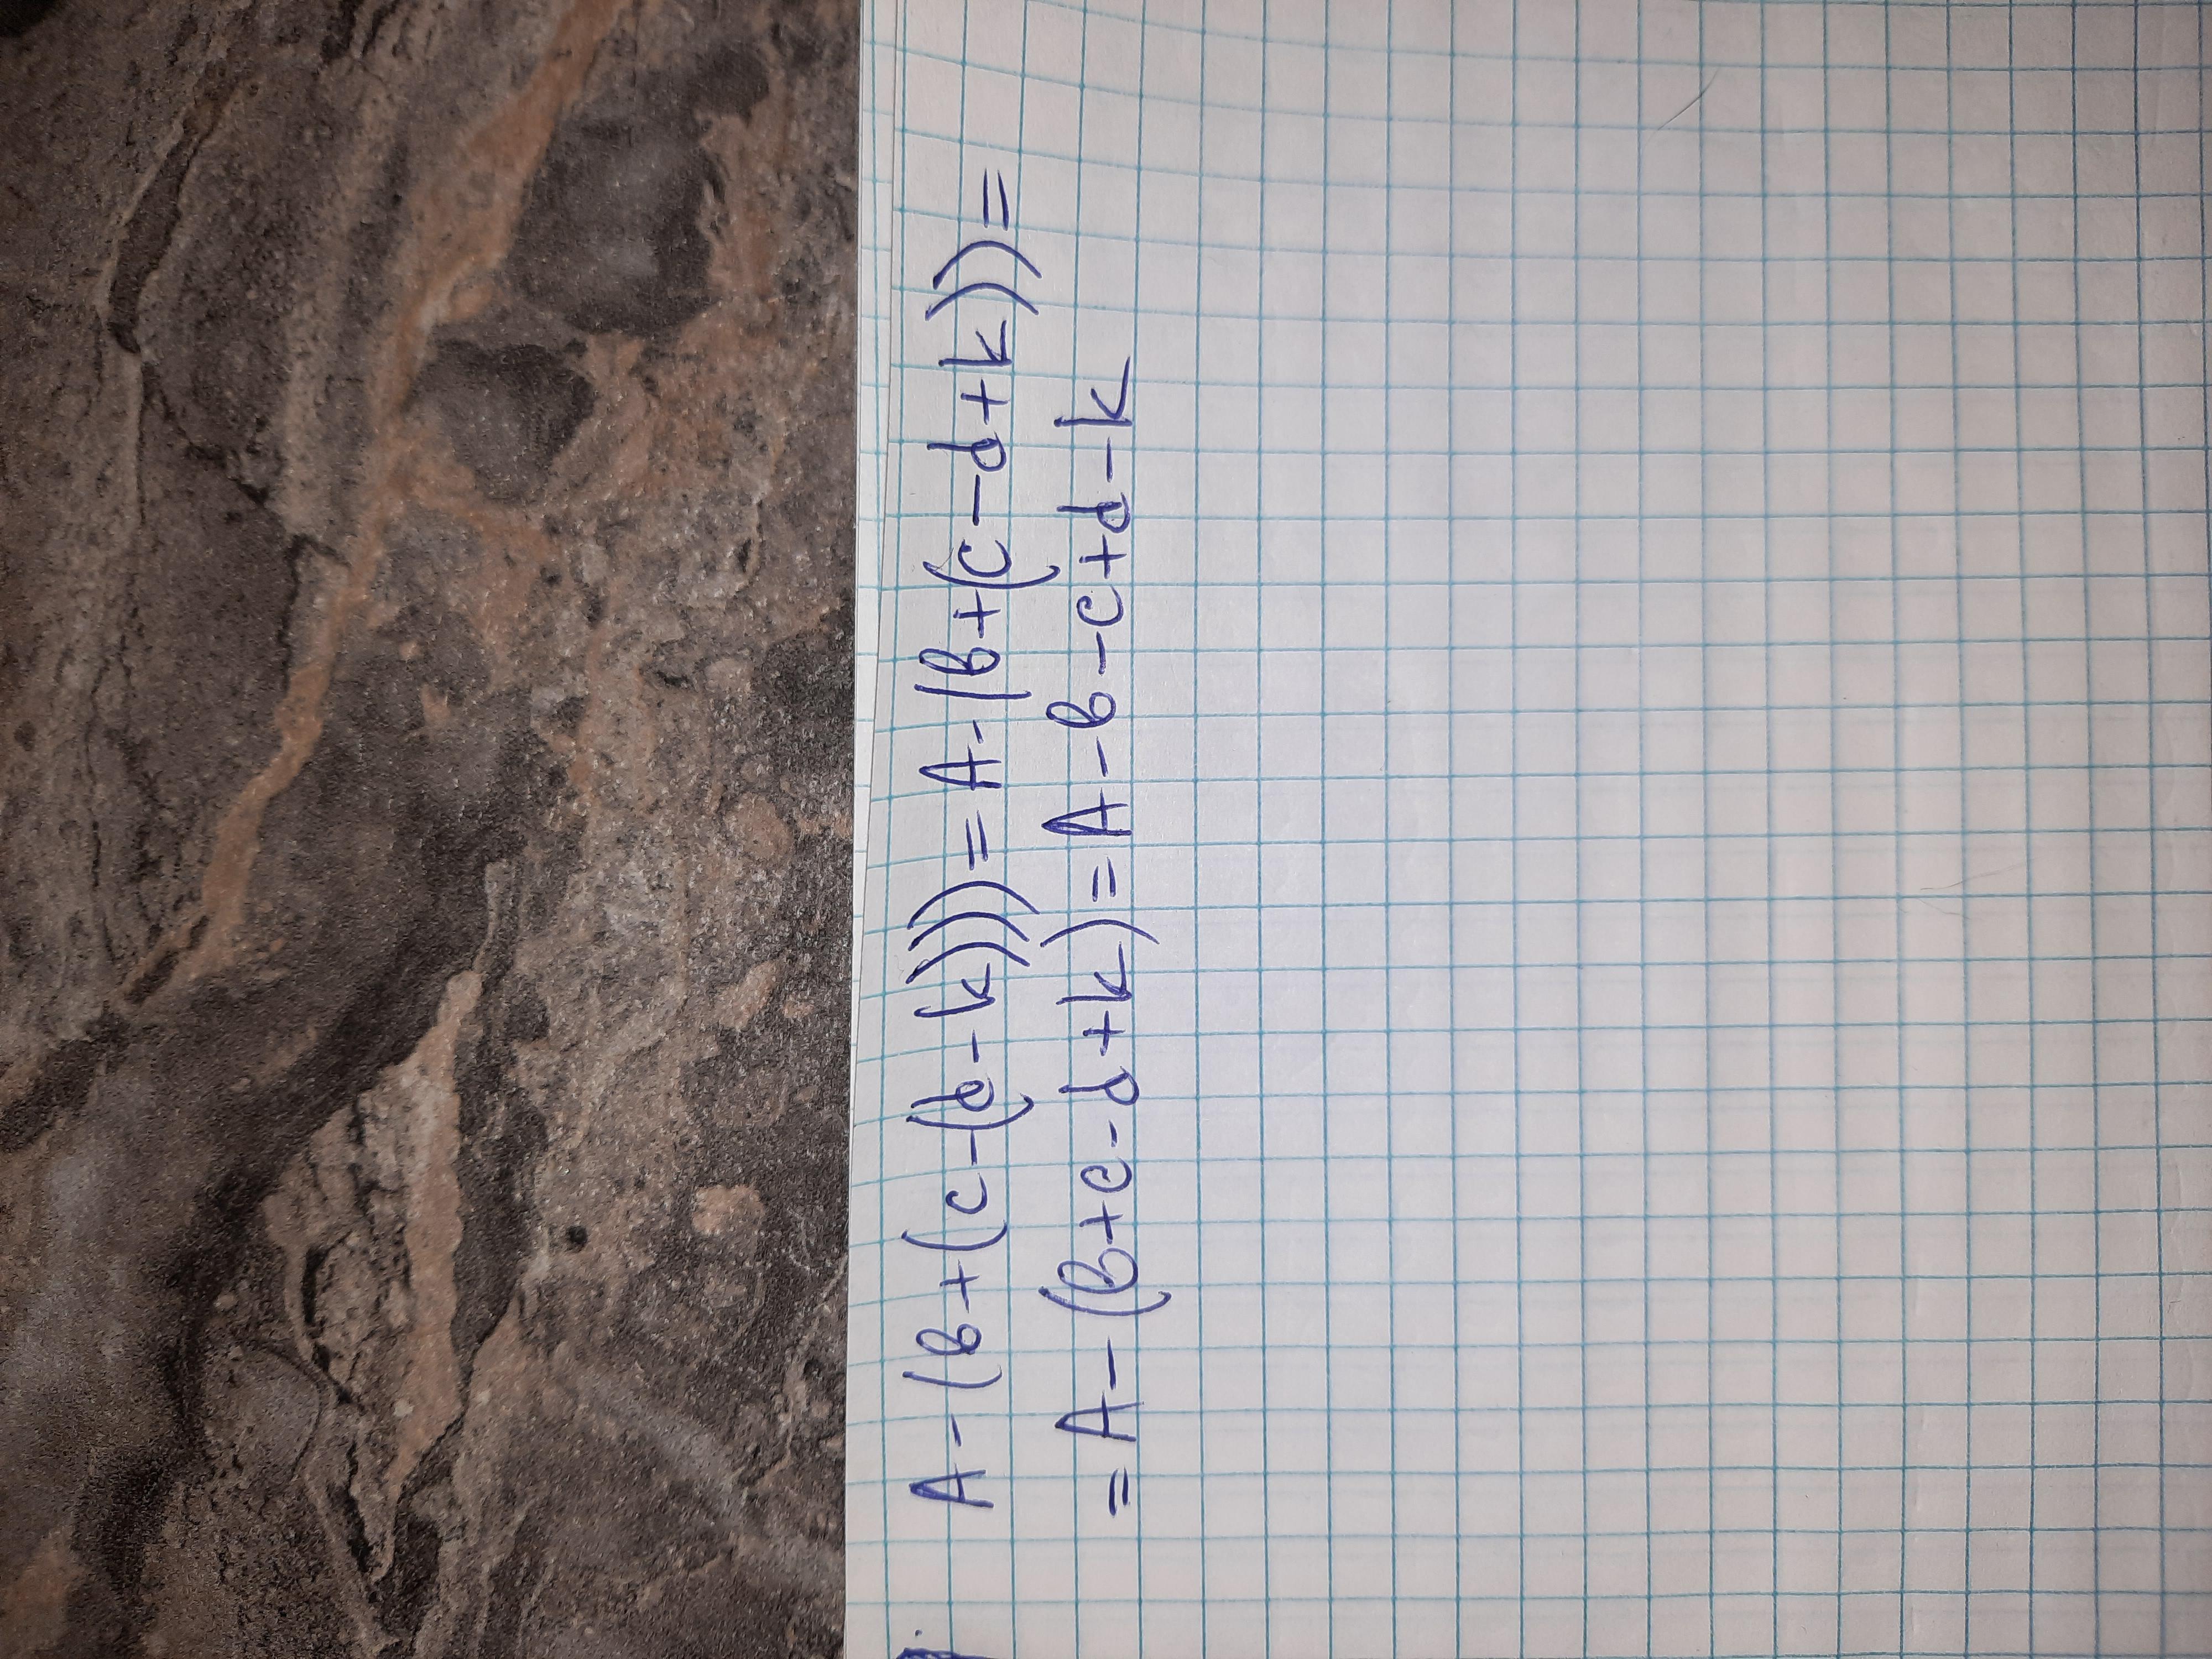 A-(в+(c-(d-k)))=A-(в+(c-d+k))=
=A-(в+c-d+k)=A-в-c+d-k